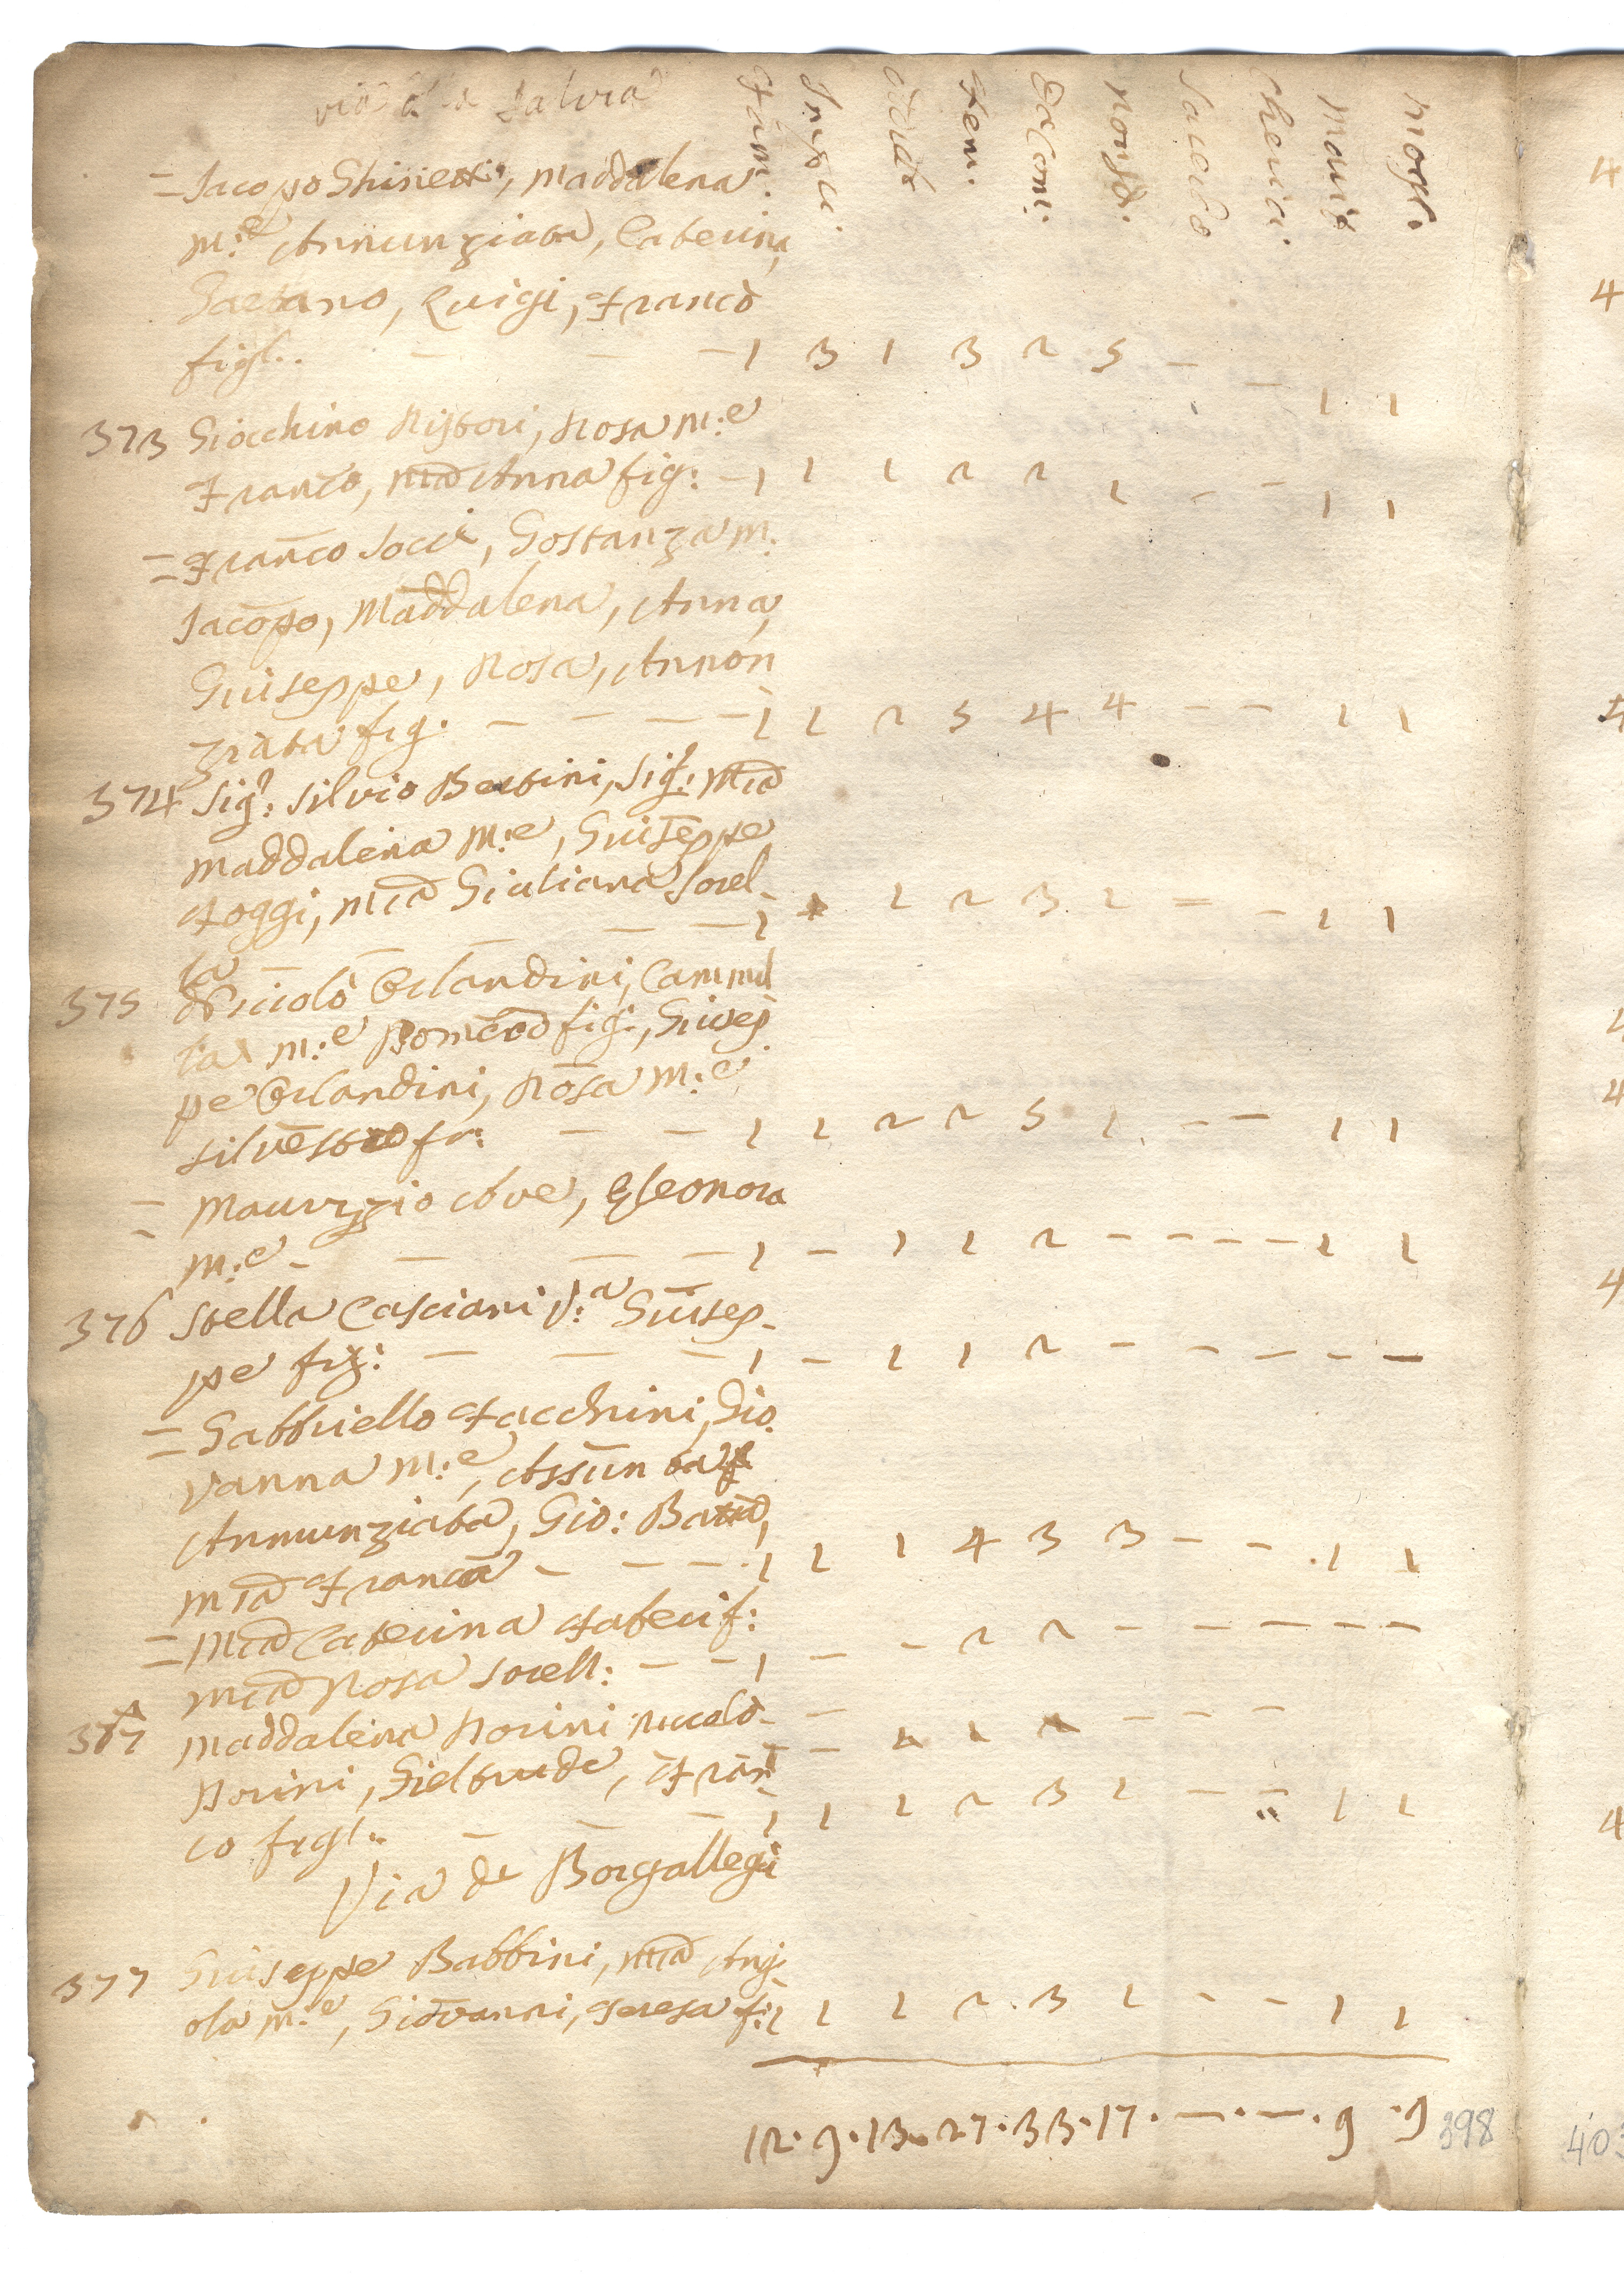 via a la Salvia
Fam: Masc: Adult Fem: Comi: NonCo: Sacerdo Cherici: Mariti Mogli:
= Jacopo Ghisietti, Maddalena
m:e Annunziata, Caterina,
Gaetano, Luigi, Franco
figl:. — — — 1 3 1 3 2 5 — — 1 1
373 Giocchino Ristori, Rosa m:e
Franco, Mia Anna fig: — 1 1 1 2 2 1 — — 1 1
= Franco Socci, Gostanza m:
Jacopo, Maddalena, Anna,
Giuseppe, Rosa, Annon
ziata fig: — — — — 1 1 2 5 4 4 — — 1 1
374 Sig:r Silvio Bertini, Sig:ra Mia
Maddalena m:e, Giuseppe
Foggi, Mia Giuliana sorel-
la — — — — 1 1 1 2 3 1 = — 1 1
375 Niccolò Orlandini, Cammil
la m:e Domco fig:, Giusep
pe Orlandini, Rosa m:e
Silvestro fr: — — 1 1 2 2 5 1 — — 1 1
= Maurizio Ove, Eleonora
m:e — — — — 1 — 1 1 2 — — — — 1 1
376 Stella Casciani V:a Giusep-
pe fig: — — — 1 — 1 1 2 — — — — —
= Gabbriello Facchini, Gio
vanna m:e, Assunta
Annunziata, Gio: Batta,
Mia Franca — — — 1 1 1 4 3 3 — — 1 1
= Mia Caterina
Mia Rosa sorell: — — 1 — — 2 2 — — — — —
Maddalena Norini Niccolò
Norini, Gieltrude, Fran
co figl:. — — — 1 1 1 2 3 1 — — 1 1
Via de Borgallegi
377 Giuseppe Babbini, Mia Ang
ola m:e, Giovanni, Teresa f: 1 1 1 2 3 1 — — 1 1
12 · 9 · 13 · 27 · 33 · 17 · — · — · 9 · 9
398